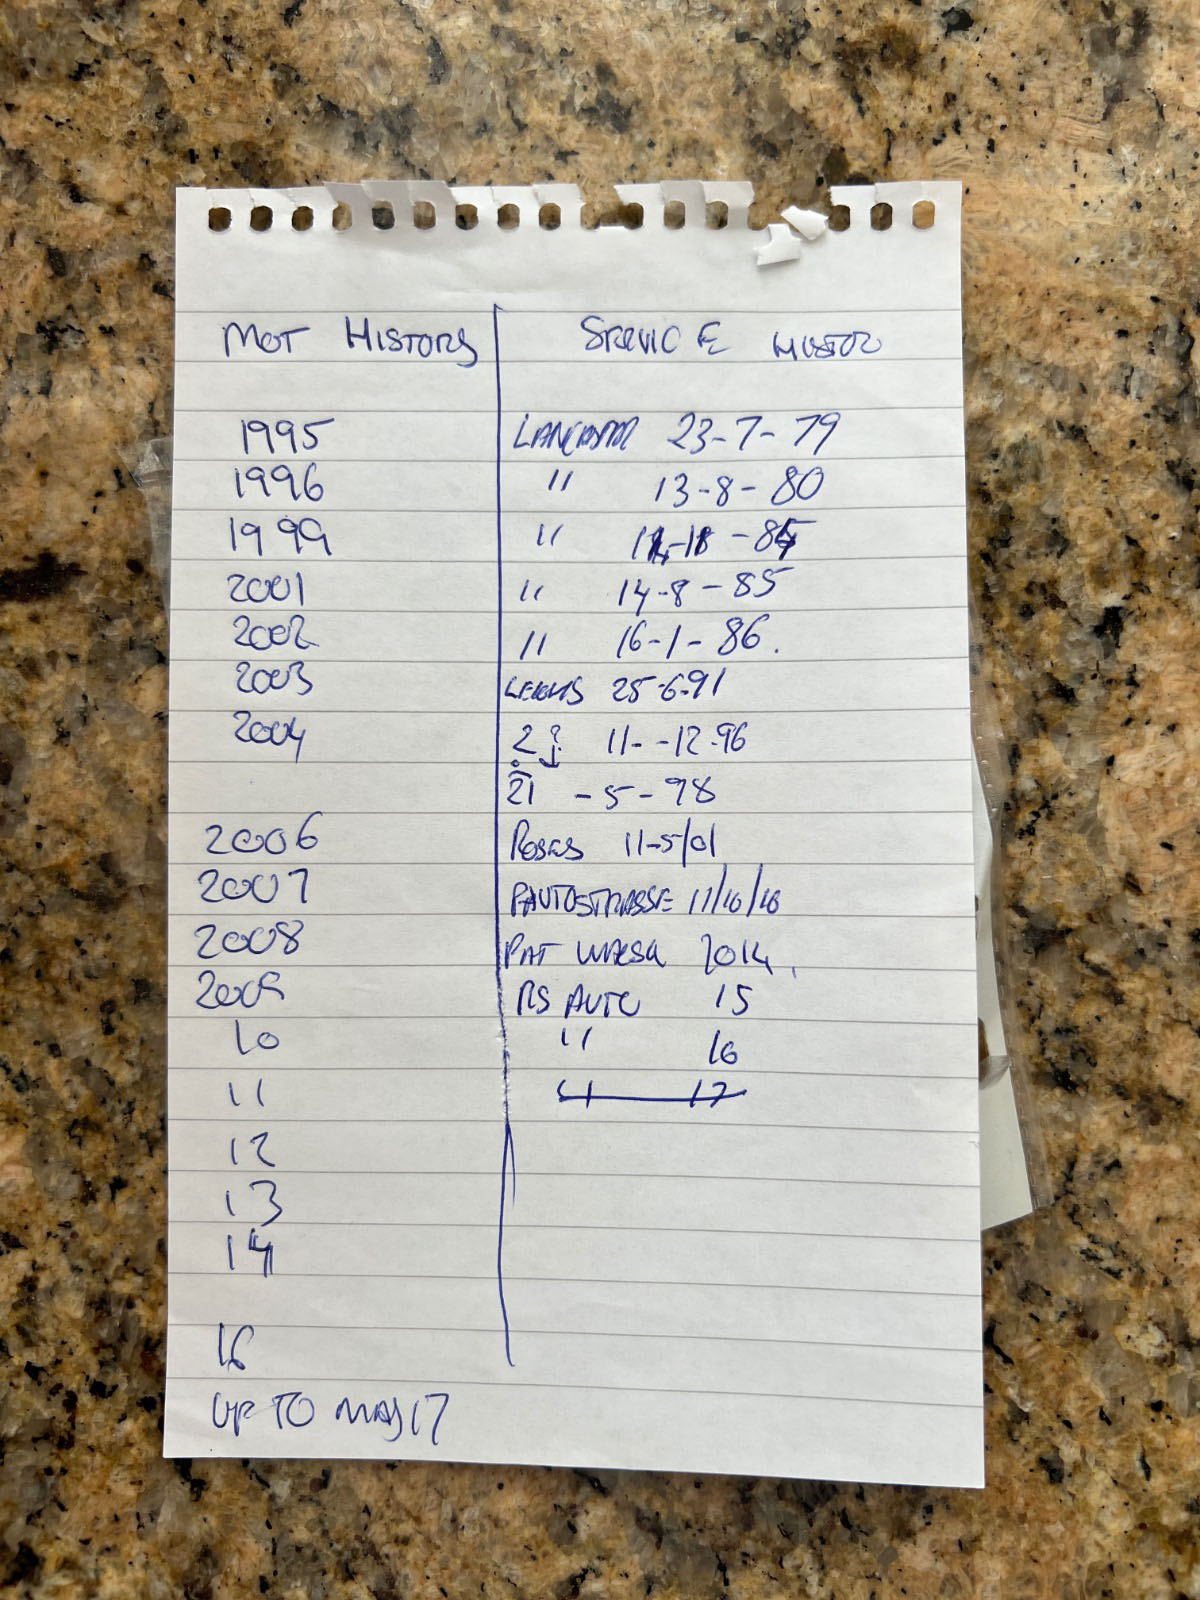 MOT HISTORY
SERVICE HISTORY
1995
LANCASTER 23-7-79
1996
" 13-8-80
1999
"
2001
" 14-8-85
2002
" 16-1-86.
2003
25-6-91
2004
2 ? 11--12.96
21 -5-98
2006
ROSES 11-5/01
2007
PAUTOSTRASSE 11/10/10
2008
PAT WALSH 2014.
2009
RS AUTO 15
10
" 16
11
" 17
12
13
14
16
UP TO MAY 17